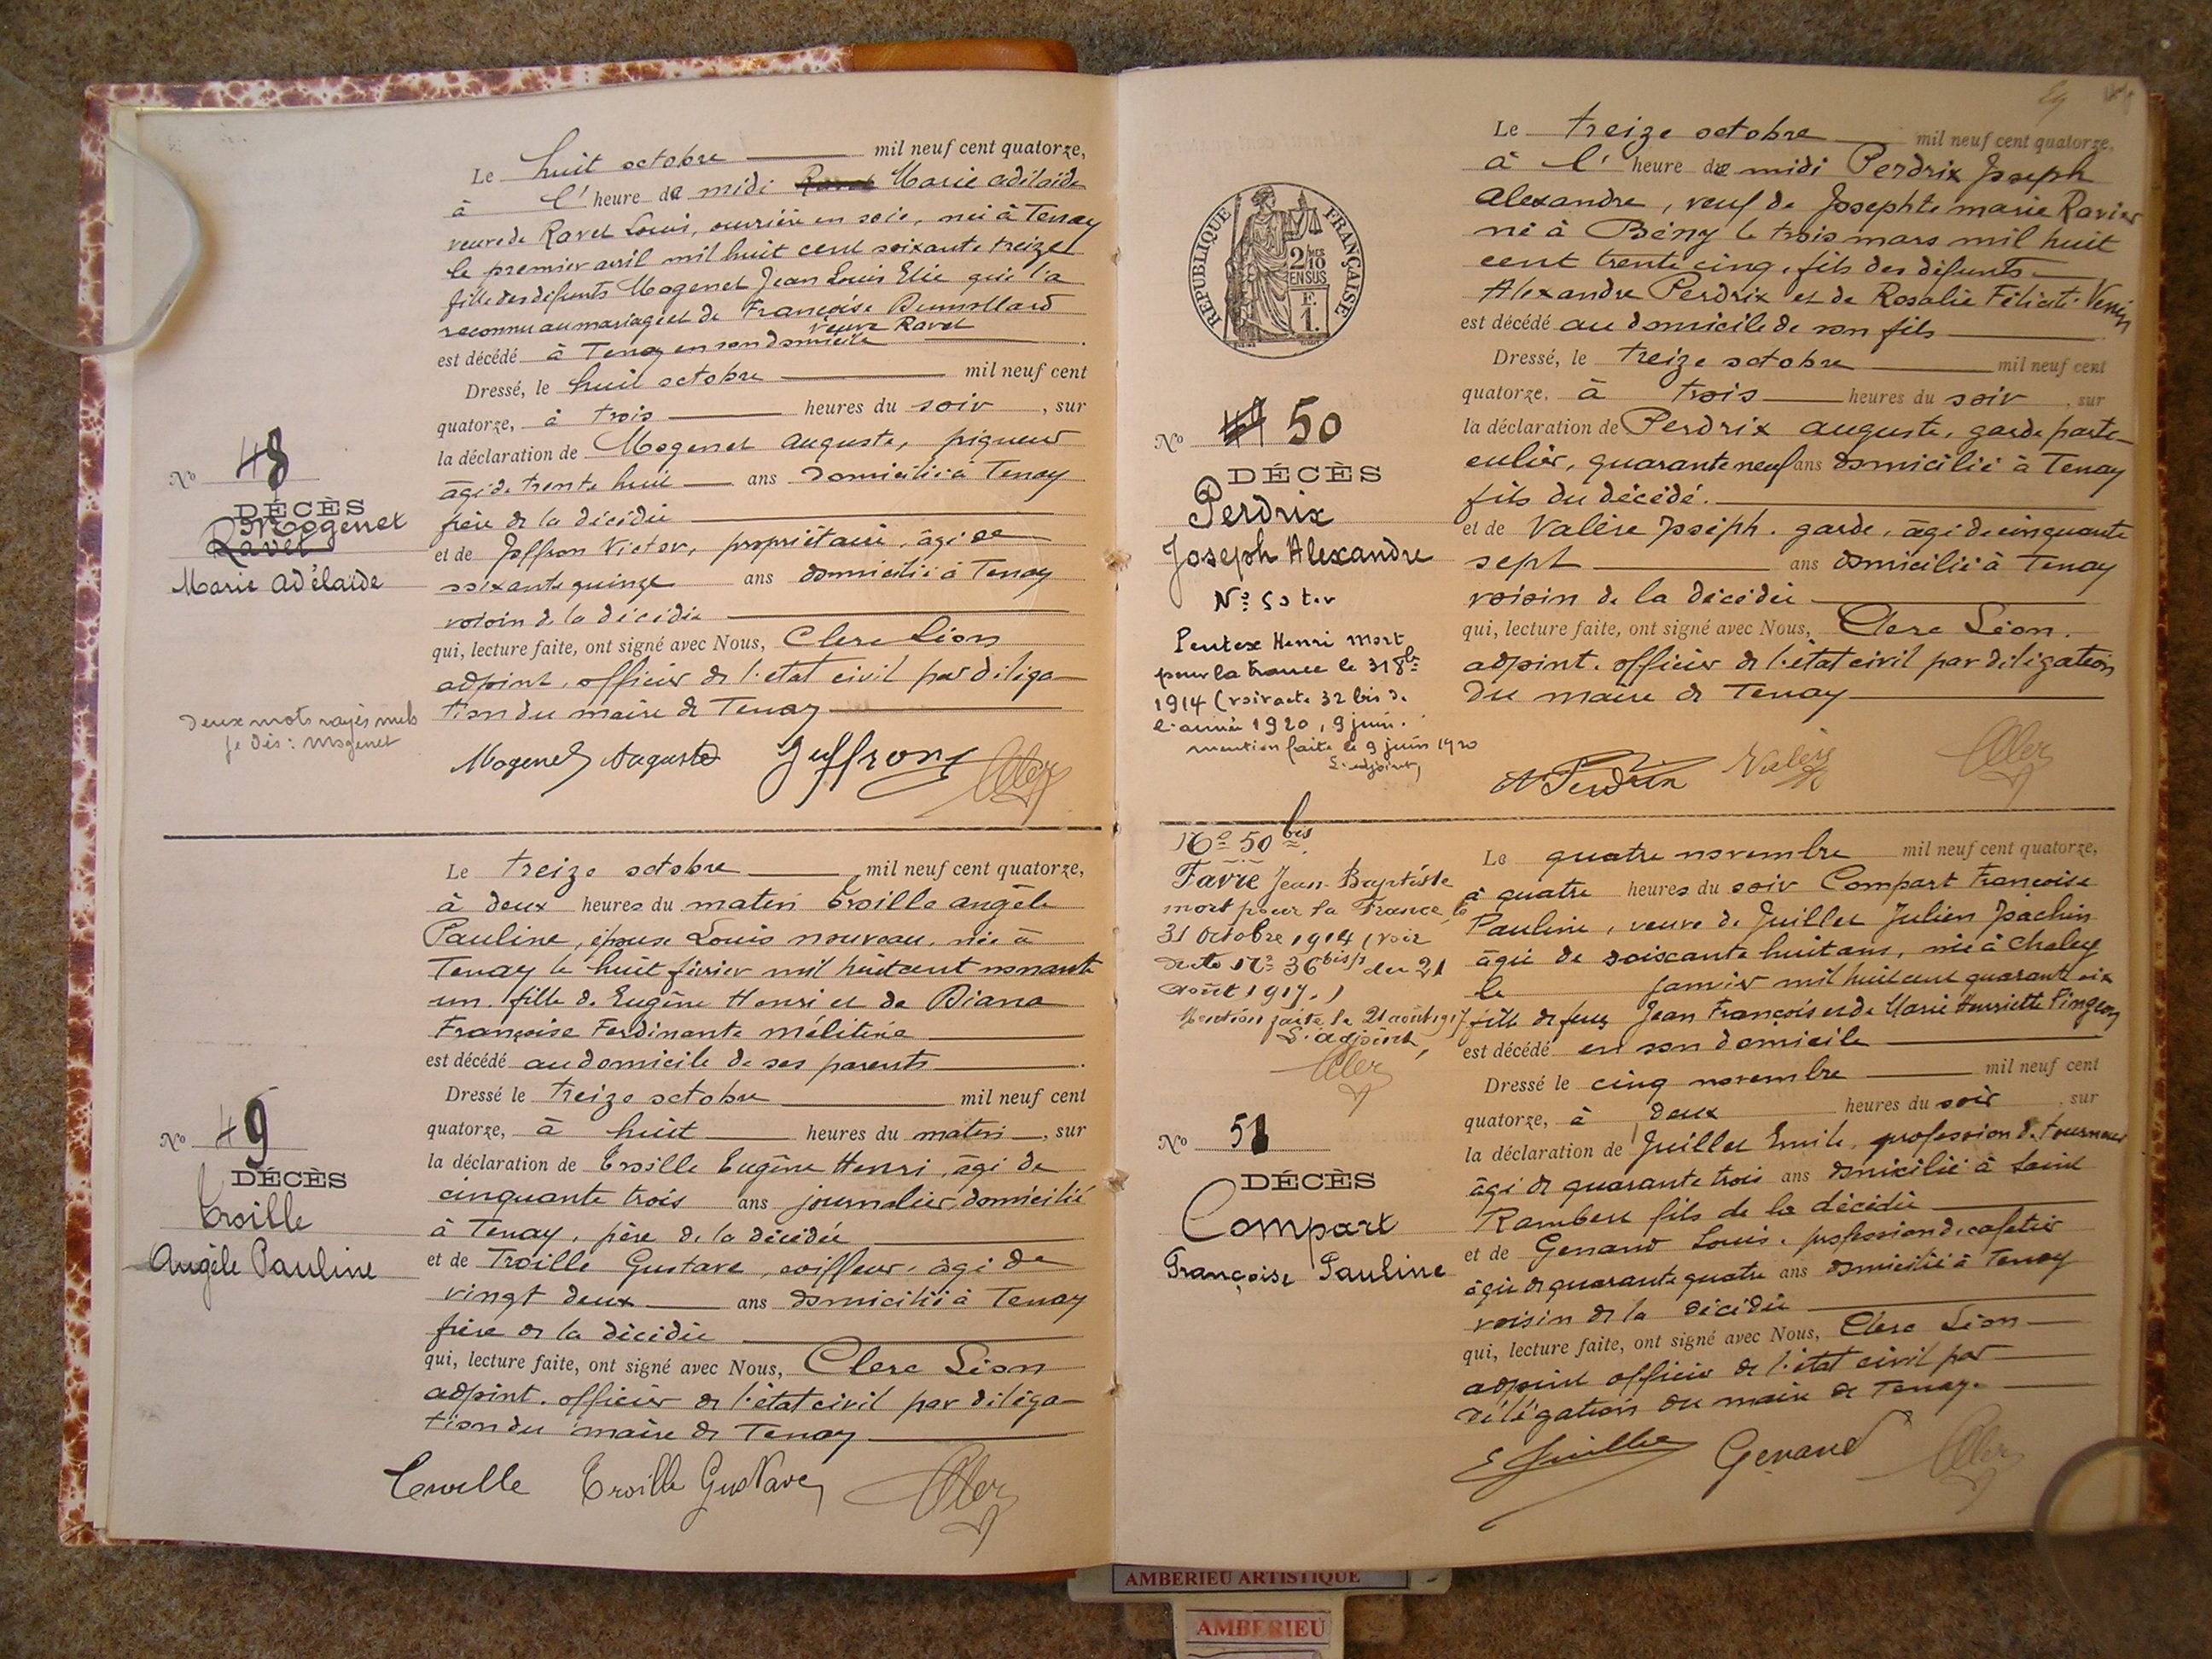 Le huit octobre mil neuf cent quatorze,
à l' heure de midi Marie adélaïde
veuve de Ravet Louis, ouvrière en soie, née à Tenay
le premier avril mil huit cent soixante treize
fille des défunts Mogenet Jean Louis Elie qui l'a
reconnu au mariage et de Françoise Dumollard
veuve Ravet
est décédé à Tenay en son domicile
Dressé, le huit octobre mil neuf cent
quatorze, à trois heures du soir, sur
la déclaration de Mogenet auguste, piqueur
âgé de trente huit ans domicilié à Tenay
frère de la décédée
et de Joffron Victor, propriétaire, âgé de
soixante quinze ans domicilié à Tenay
voisin de la décédée
qui, lecture faite, ont signé avec Nous, Clerc Léon
adjoint, officier de l'état civil par déléga-
tion du maire de Tenay
Mogenet Auguste Juffron
No 48
DÉCÈS
Mogenet
Ravet
Marie adélaïde
Deux mots rayés nuls
je dis : Mogenet
Le treize octobre mil neuf cent quatorze,
à deux heures du matin Troille angèle
Pauline, épouse Louis nouveau, née à
Tenay le huit février mil huit cent nonante
un, fille de Eugène Henri et de Diana
Françoise Ferdinante mélitine
est décédé au domicile de ses parents
Dressé le treize octobre mil neuf cent
quatorze, à huit heures du matin, sur
la déclaration de Troille Eugène Henri, âgé de
cinquante trois ans journalier domicilié
à Tenay, père de la décédée
et de Troille Gustave, coiffeur, âgé de
vingt deux ans domicilié à Tenay
frère de la décédée
qui, lecture faite, ont signé avec Nous, Clerc Léon
adjoint, officier de l'état civil par déléga-
tion du maire de Tenay
Troille Troille Gustave
No 49
DÉCÈS
Troille
Angèle Pauline
Le treize octobre mil neuf cent quatorze,
à l' heure de midi Perdrix Joseph
alexandre, veuf de Josephte marie Ravier
né à Bény le trois mars mil huit
cent trente cinq, fils des défunts
Alexandre Perdrix et de Rosalie Félicité
est décédé au domicile de son fils
Dressé, le treize octobre mil neuf cent
quatorze, à trois heures du soir, sur
la déclaration de Perdrix auguste, garde parti-
culier, quarante neuf ans domicilié à Tenay
fils du décédé.
et de Valère Joseph, garde, âgé de cinquante
sept ans domicilié à Tenay
voisin de la décédée
qui, lecture faite, ont signé avec Nous, Clerc Léon,
adjoint, officier de l'état civil par délégation
du maire de Tenay
A Perdrix Valère
RÉPUBLIQUE FRANÇAISE
2/10 EN SUS
F. 1.
No 50
DÉCÈS
Perdrix
Joseph Alexandre
No 50 ter
Peutex Henri mort
pour la France le 31 8bre
1914 (voir acte 32 bis de
l'année 1920, 9 juin.
mention faite le 9 juin 1920
L'adjoint,
No 50 bis
Favre Jean-Baptiste
mort pour la France le
31 Octobre 1914 (voir
acte No 36 bis du 21
août 1917.)
Mention faite le 21 août 1917
L'adjoint,
Le quatre novembre mil neuf cent quatorze,
à quatre heures du soir Compart Françoise
Pauline, veuve de Juillet Julien Joachin
âgée de soixante huit ans, née à Chaley
le janvier mil huit cent quarante six
fille de feus Jean François et de Marie Henriette Pingeon
est décédé en son domicile
Dressé le cinq novembre mil neuf cent
quatorze, à deux heures du soir, sur
la déclaration de Juillet Emile, profession de tourneur
âgé de quarante trois ans domicilié à Saint
Rambert fils de la décédée
et de Genand Louis, profession de cafetier
âgée de quarante quatre ans domicilié à Tenay
voisin de la décédée
qui, lecture faite, ont signé avec Nous, Clerc Léon
adjoint officier de l'état civil par
délégation du maire de Tenay.
E Juillet Genand
No 51
DÉCÈS
Compart
Françoise Pauline
AMBERIEU ARTISTIQUE
AMBERIEU